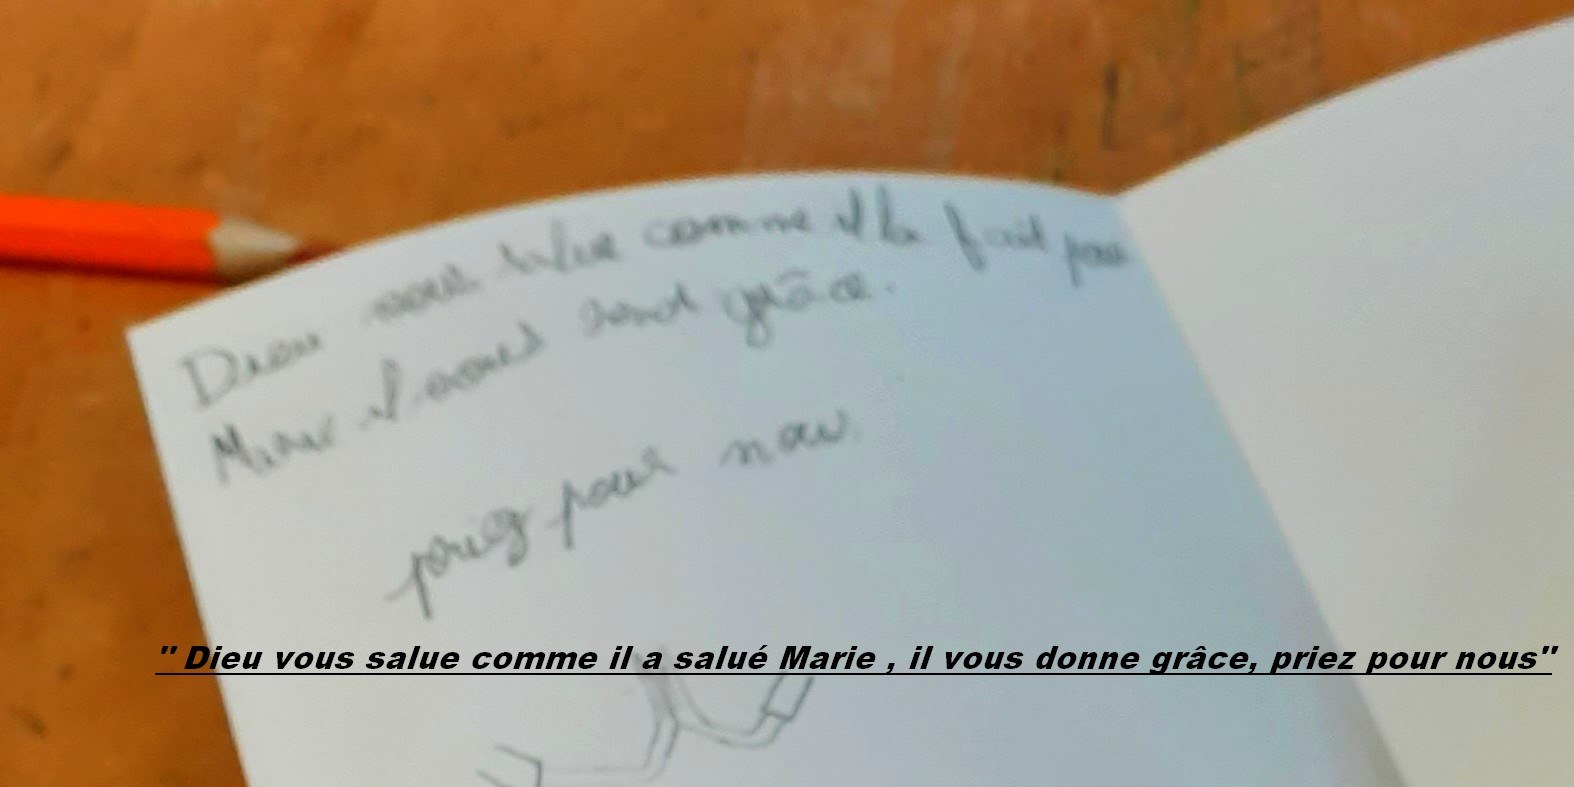 Dieu vous salue comme il l'a fait pour
Marie il vous rend grâce.
priez pour nous.
" Dieu vous salue comme il a salué Marie , il vous donne grâce, priez pour nous"